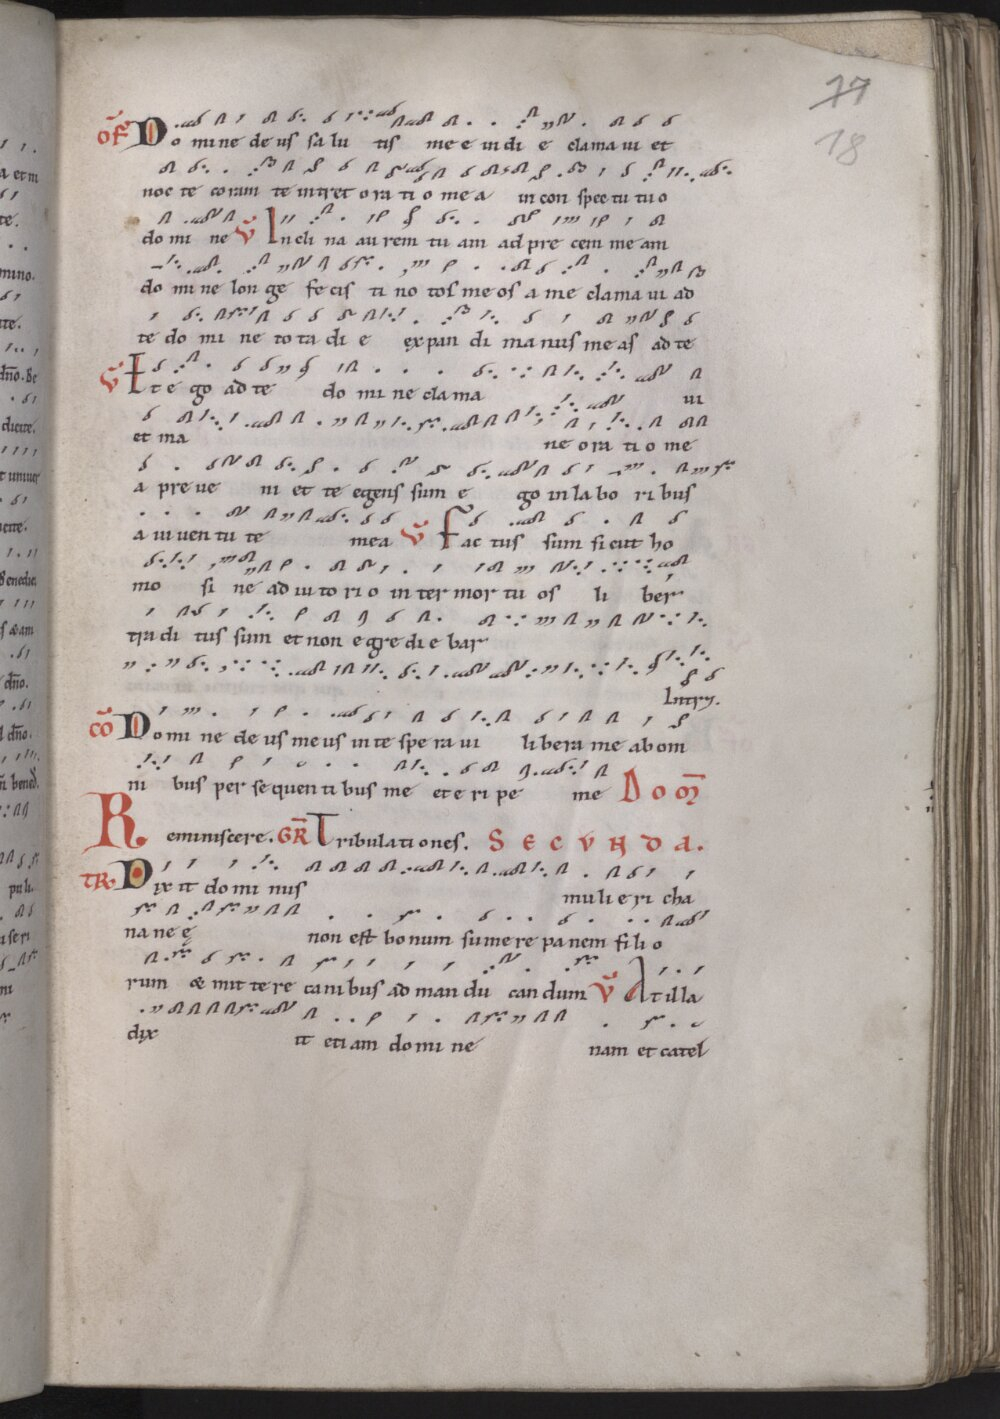 77
18
OF Do mi ne de us sa lu tis me e in di e clama ui et
noc te coram te intret o ra ti o me a in con spec tu tu o
do mi ne V Incli na au rem tu am ad pre cem me am
do mi ne lon ge fe cis ti no tos me os a me clama ui ad
te do mi ne to ta di e expan di ma nus me as ad te
V Et e go ad te do mi ne clama ui
et ma ne ora ti o me
a pre ue ni et te egens sum e go in la bo ri bus
a iu uen tu te mea V Fac tus sum si cut ho
mo si ne ad iu to ri o in ter mor tu os li ber
tra di tus sum et non e gre di e bar
Intry.
CO Do mi ne de us me us in te spe ra ui libera me ab om
ni bus per se quen ti bus me et e ri pe me DOM
Reminiscere. GR Tribulationes. SECUNDA.
TR Dixit do mi nus mu li e ri cha
na ne ę non est bo num su me re pa nem fi li o
rum & mit te re cani bus ad man du can dum V At illa
dix it eti am do mi ne nam et catel